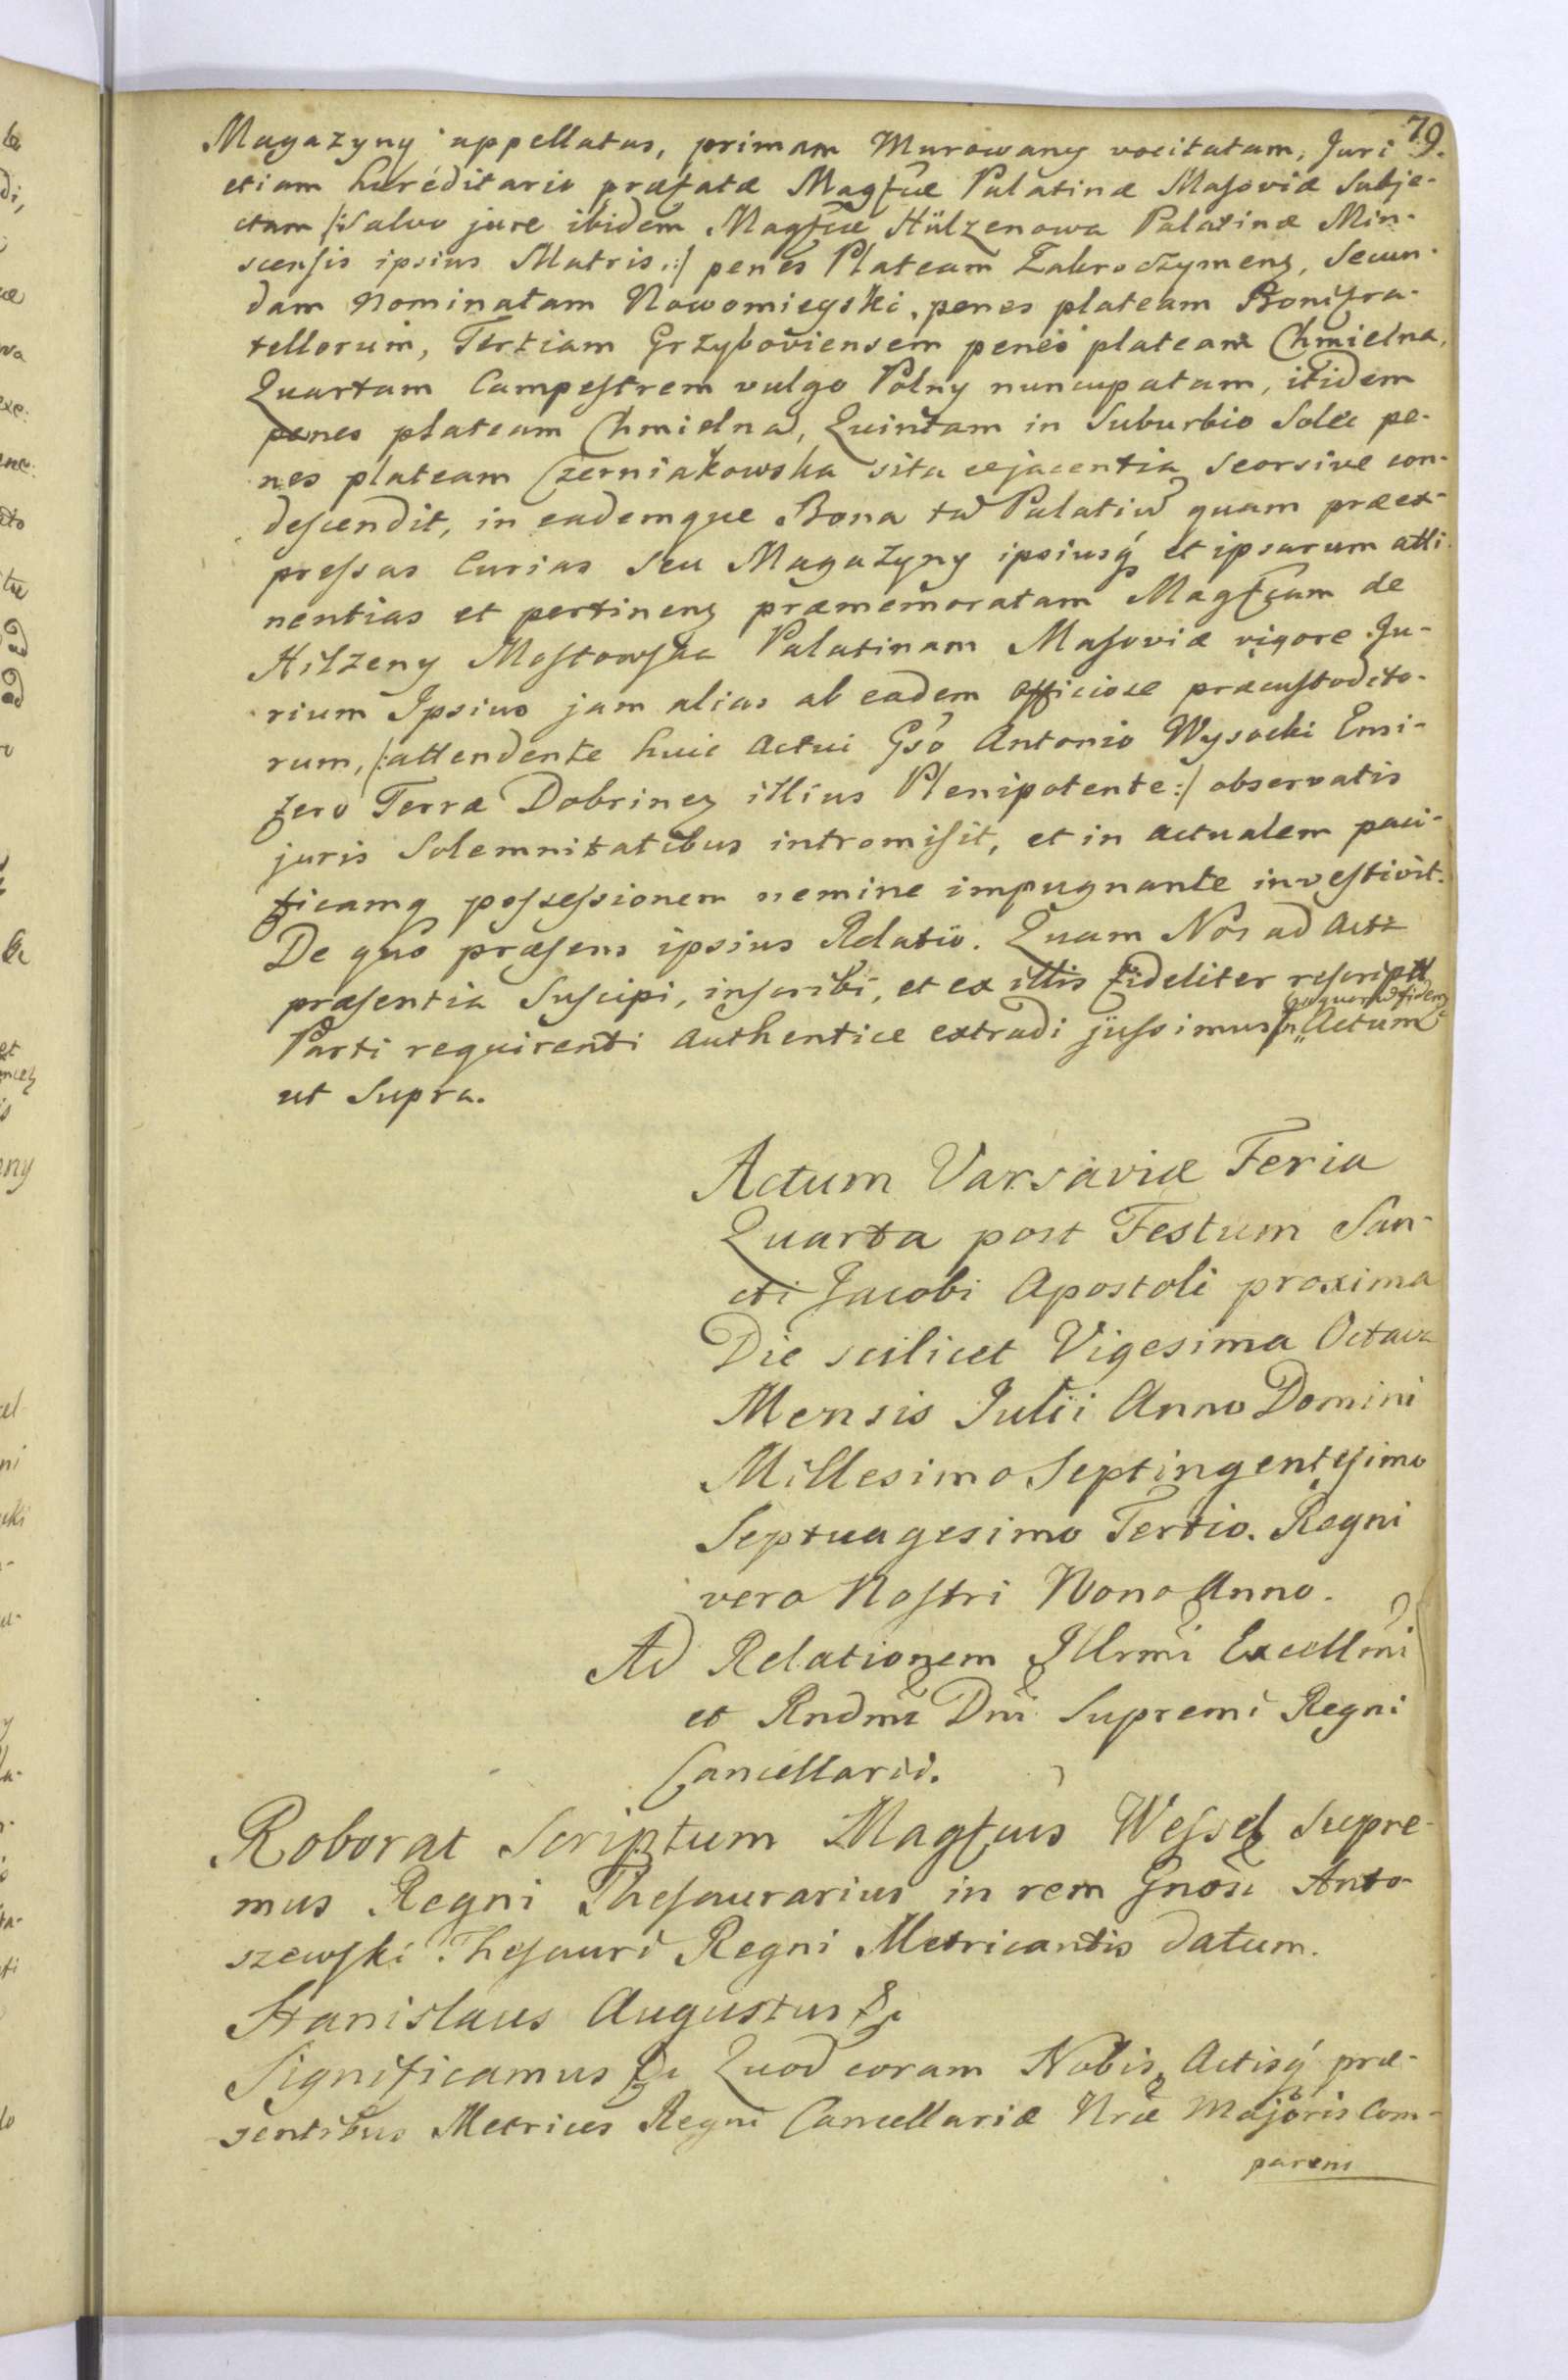 79.
Magazyny appellatas, primam Murowany vocitatam, Juri
etiam hæreditario præfatæ Magfcæ Palatinæ Masoviæ Subje-
ctam /:Salvo jure ibidem Magfcæ Hülzenowa Palatinæ Min-
scensis ipsius Matris:/ penes Plateam Zakroczymeng, Secun-
dam Nominatam Nowomieyski, penes plateam Bonifra-
tellorum, Tertiam Grzyboviensem penes plateam Chmielna,
Quartam Campestrem vulgo Polny nuncupatam, itidem
penes plateam Chmielna, Quintam in Suburbio Solec pe-
nes plateam Czerniakowska sita cejacentia Seorsive con-
descendit, in eademque Bona Palatiu quam præex-
pressas Curias Seu Magazyny ipsiusq et ipsarum atti-
nentias et pertineng præmemoratam Magfcam de
Hilzeny Mostowska Palatinam Masoviæ vigore Ju-
rium Ipsius jam alias ab eadem officiose præcustodito-
rum, /:attendente huic Actui Gso Antonio Wysocki Ensi-
fero Terræ Dobrineg illius Plenipotente:/ observatis
juris Solemnitatibus intromisit, et in actualem paci-
ficamq possessionem nemine impugnante investivit.
De quo præsens ipsius Relatio. Quam Nos ad Acta
præsentia Suscipi, inscribi, et ex illis fideliter rescriptt
in quorum fidem
Parti requirenti Authentice extradi jussimus Actum
ut Supra.
Actum Varsaviæ Feria
Quarta post Festum San-
cti Jacobi Apostoli proxima
Die scilicet Vigesima Octava
Mensis Julii Anno Domini
Millesimo Septingentesimo
Septuagesimo Tertio. Regni
vero Nostri Nono Anno.
Ad Relationem Illrmi Excellmi
et Rndmi Dni Supremi Regni
Cancellarii.
Roborat Scriptum Magfcus Wessel Supre-
mus Regni Thesaurarius in rem Gnosi Anto-
szewski Thesauri Regni Metricantis datum.
Stanislaus Augustus &
Significamus & Quod coram Nobis, Actisq præ-
sentibus Metrices Regni Cancellariæ Nræ Majoris Com-
parens